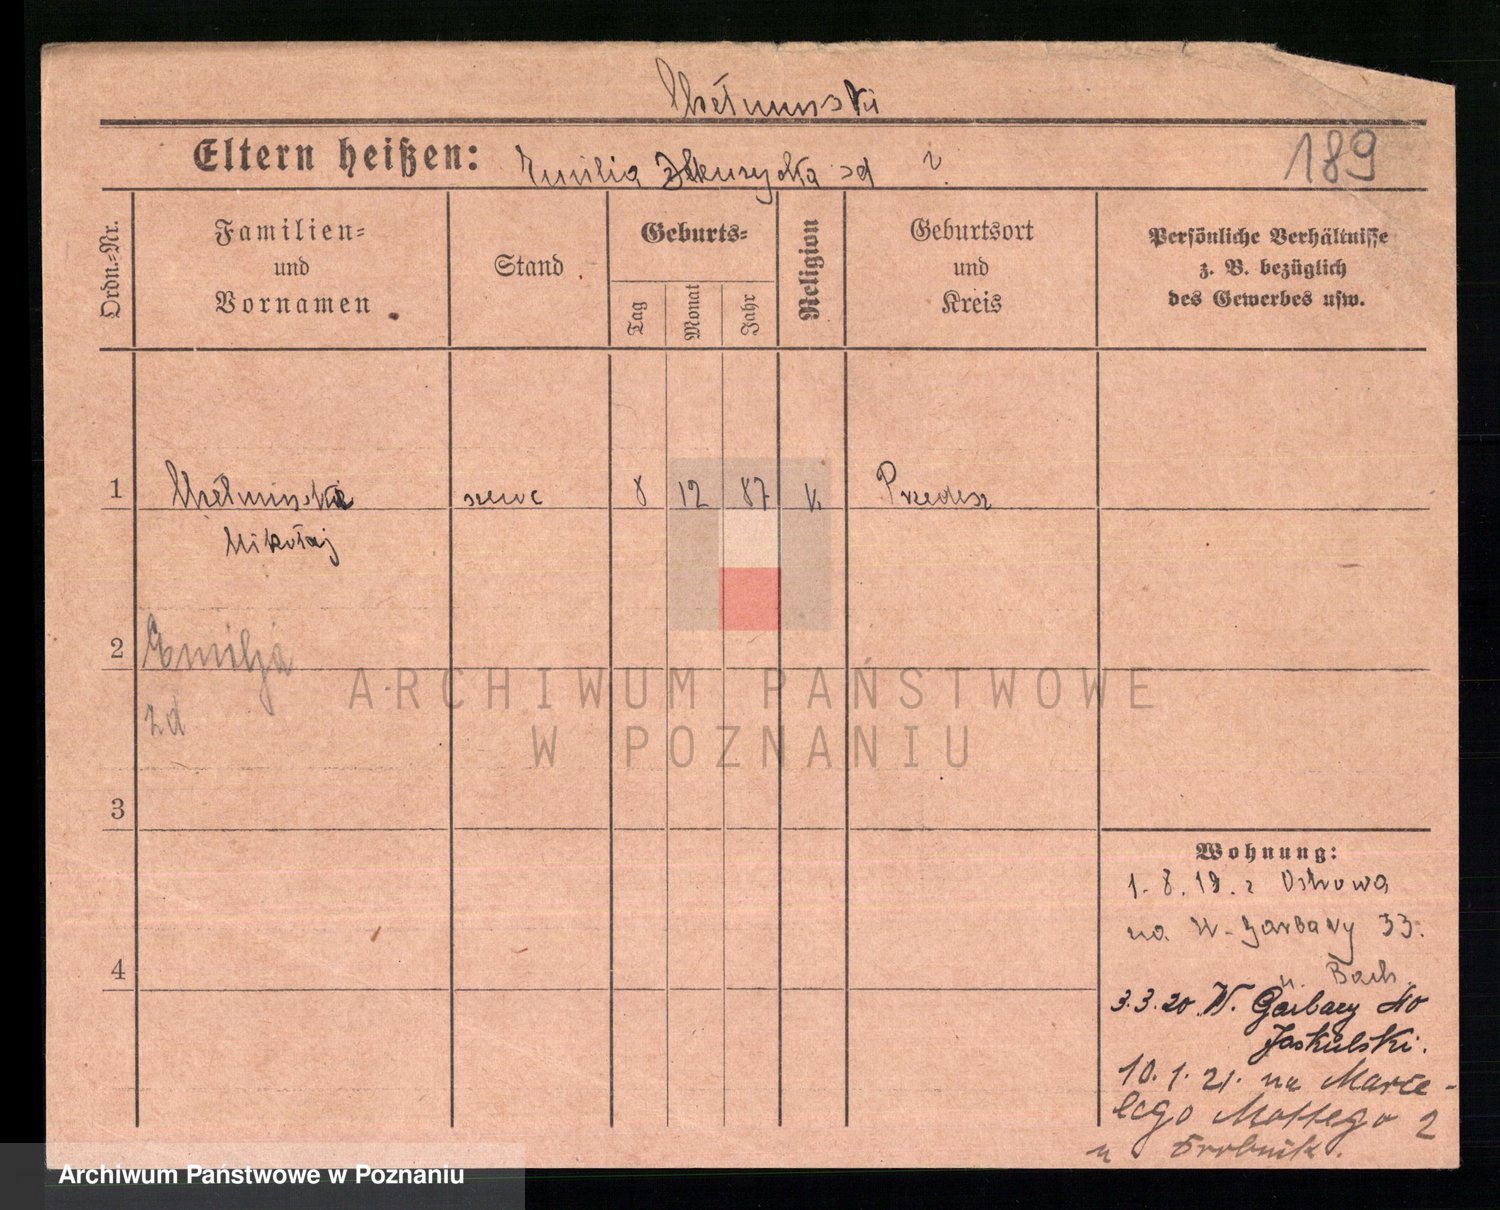 Chełminski
Eltern heißen: Emilia sd ?
189
Ordn.-Nr.
Familien-
und
Vornamen
Stand
Geburts-
Tag
Monat
Jahr
Religion
Geburtsort
und
Kreis
Persönliche Verhältnisse
z. B. bezüglich
des Gewerbes usw.
1 Chełminski szewc 8 12 87 k. Przedecz
Mikołaj
2 Emilja
zd
3
4
Wohnung:
1. 8. 19. z Ostrowa
na W. Garbary 33.
u. Bach
3.3.20 W. Garbary 40
Jaskulski.
10. 1. 21. na Marce-
lego Mottego 2
u
ARCHIWUM PAŃSTWOWE
W POZNANIU
Archiwum Państwowe w Poznaniu